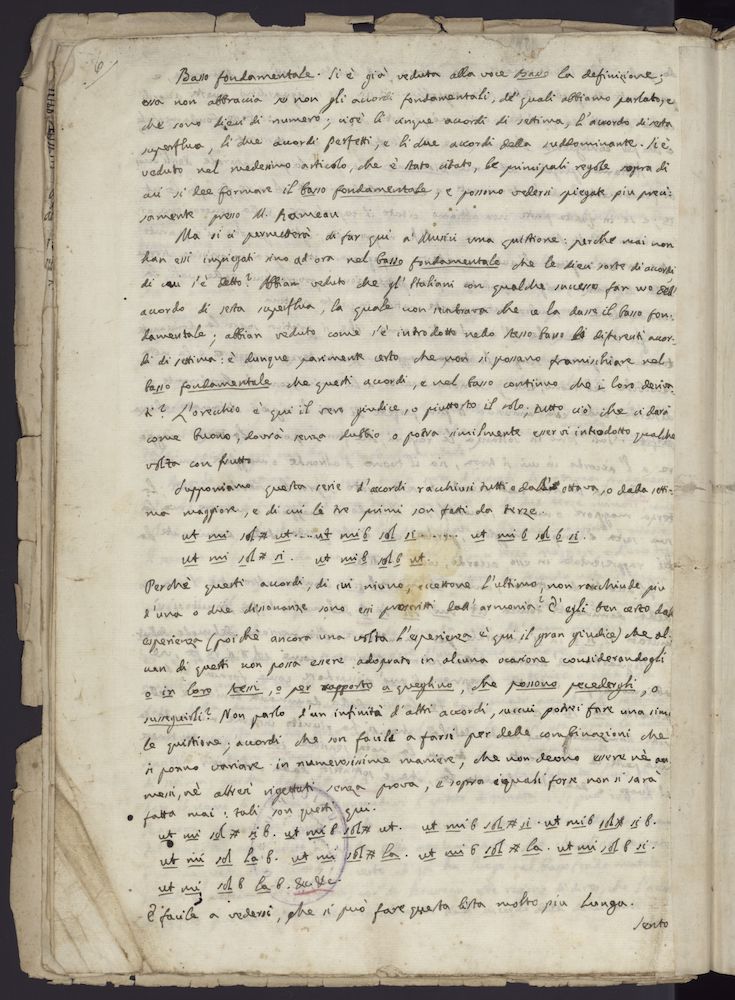 6
Basso fondamentale. Si è già veduta alla voce Basso la definizione;
essa non abbraccia se non gli accordi fondamentali, de' quali abbiamo parlato, e
che sono dieci di numero; cioè li cinque accordi di settima, l'accordo di sesta
superflua, li due accordi perfetti, e li due accordi della suddominante. Si è
veduto nel medesimo articolo, che è stato citato, le principali regole sopra di
cui si dee formare il basso fondamentale, e possono vedersi spiegate più preci:
samente presso M. Rameau
Ma si ci permetterà di far qui a' Musici una quistione: perchè mai non
han essi impiegati sino ad ora nel basso fondamentale che le dieci sorte di accordi
di cui s'è detto? Abbiam veduto che gl'Italiani con qualche successo far uso dell'
accordo di sesta superflua, la quale non sembrava che ce la dasse il basso fon:
damentale; abbiam veduto come s'è introdotto nello stesso basso li differenti accor:
di di settima: è dunque parimente certo che non si possano frammischiare nel
basso fondamentale che questi accordi, e nel basso continuo che i loro deriva:
ti? L'orecchio è qui il vero giudice, o piuttosto il solo; tutto ciò che ci darà
come buono, dovrà senza dubbio o potrà similmente esservi introdotto qualche
volta con frutto
Supponiamo questa serie d'accordi racchiusi tutti o dall' ottava, o dalla setti:
ma maggiore, e di cui le tre primi son fatti da terze.
ut mi sol # ut .... ut mi b sol si ........ ut mi b sol b si.
ut mi sol # si. ut mi b sol b ut.
Perchè questi accordi, di cui niuno, eccettone l'ultimo, non racchiude più
d'una o due dissonanze sono essi proscritti dall'armonia? È egli ben certo dall'
esperienza (poichè ancora una volta l'esperienza è qui il gran giudice) che al:
cun di questi non possa essere adoprato in alcuna occasione considerandogli
o in loro stessi, o per rapporto a queglino, che possono precedergli, o
susseguirli? Non parlo d'un infinità d'altri accordi, su cui potrei fare una simi:
le quistione; accordi che son facili a farsi per delle combinazioni che
si ponno variare in numerosissime maniere, che non devono essere nè am
messi, nè altresì rigettati senza prova, e sopra e quali forse non si sarà
fatta mai: tali son questi qui.
ut mi sol # si b. ut mi b sol # ut. ut mi b sol # si. ut mi b sol # si b.
ut mi sol la b. ut mi sol # la. ut mi b sol # la. ut mi sol b si.
ut mi sol b la b. &c. &c.
È facile a vedersi, che si può fare questa lista molto più lunga.
Sento